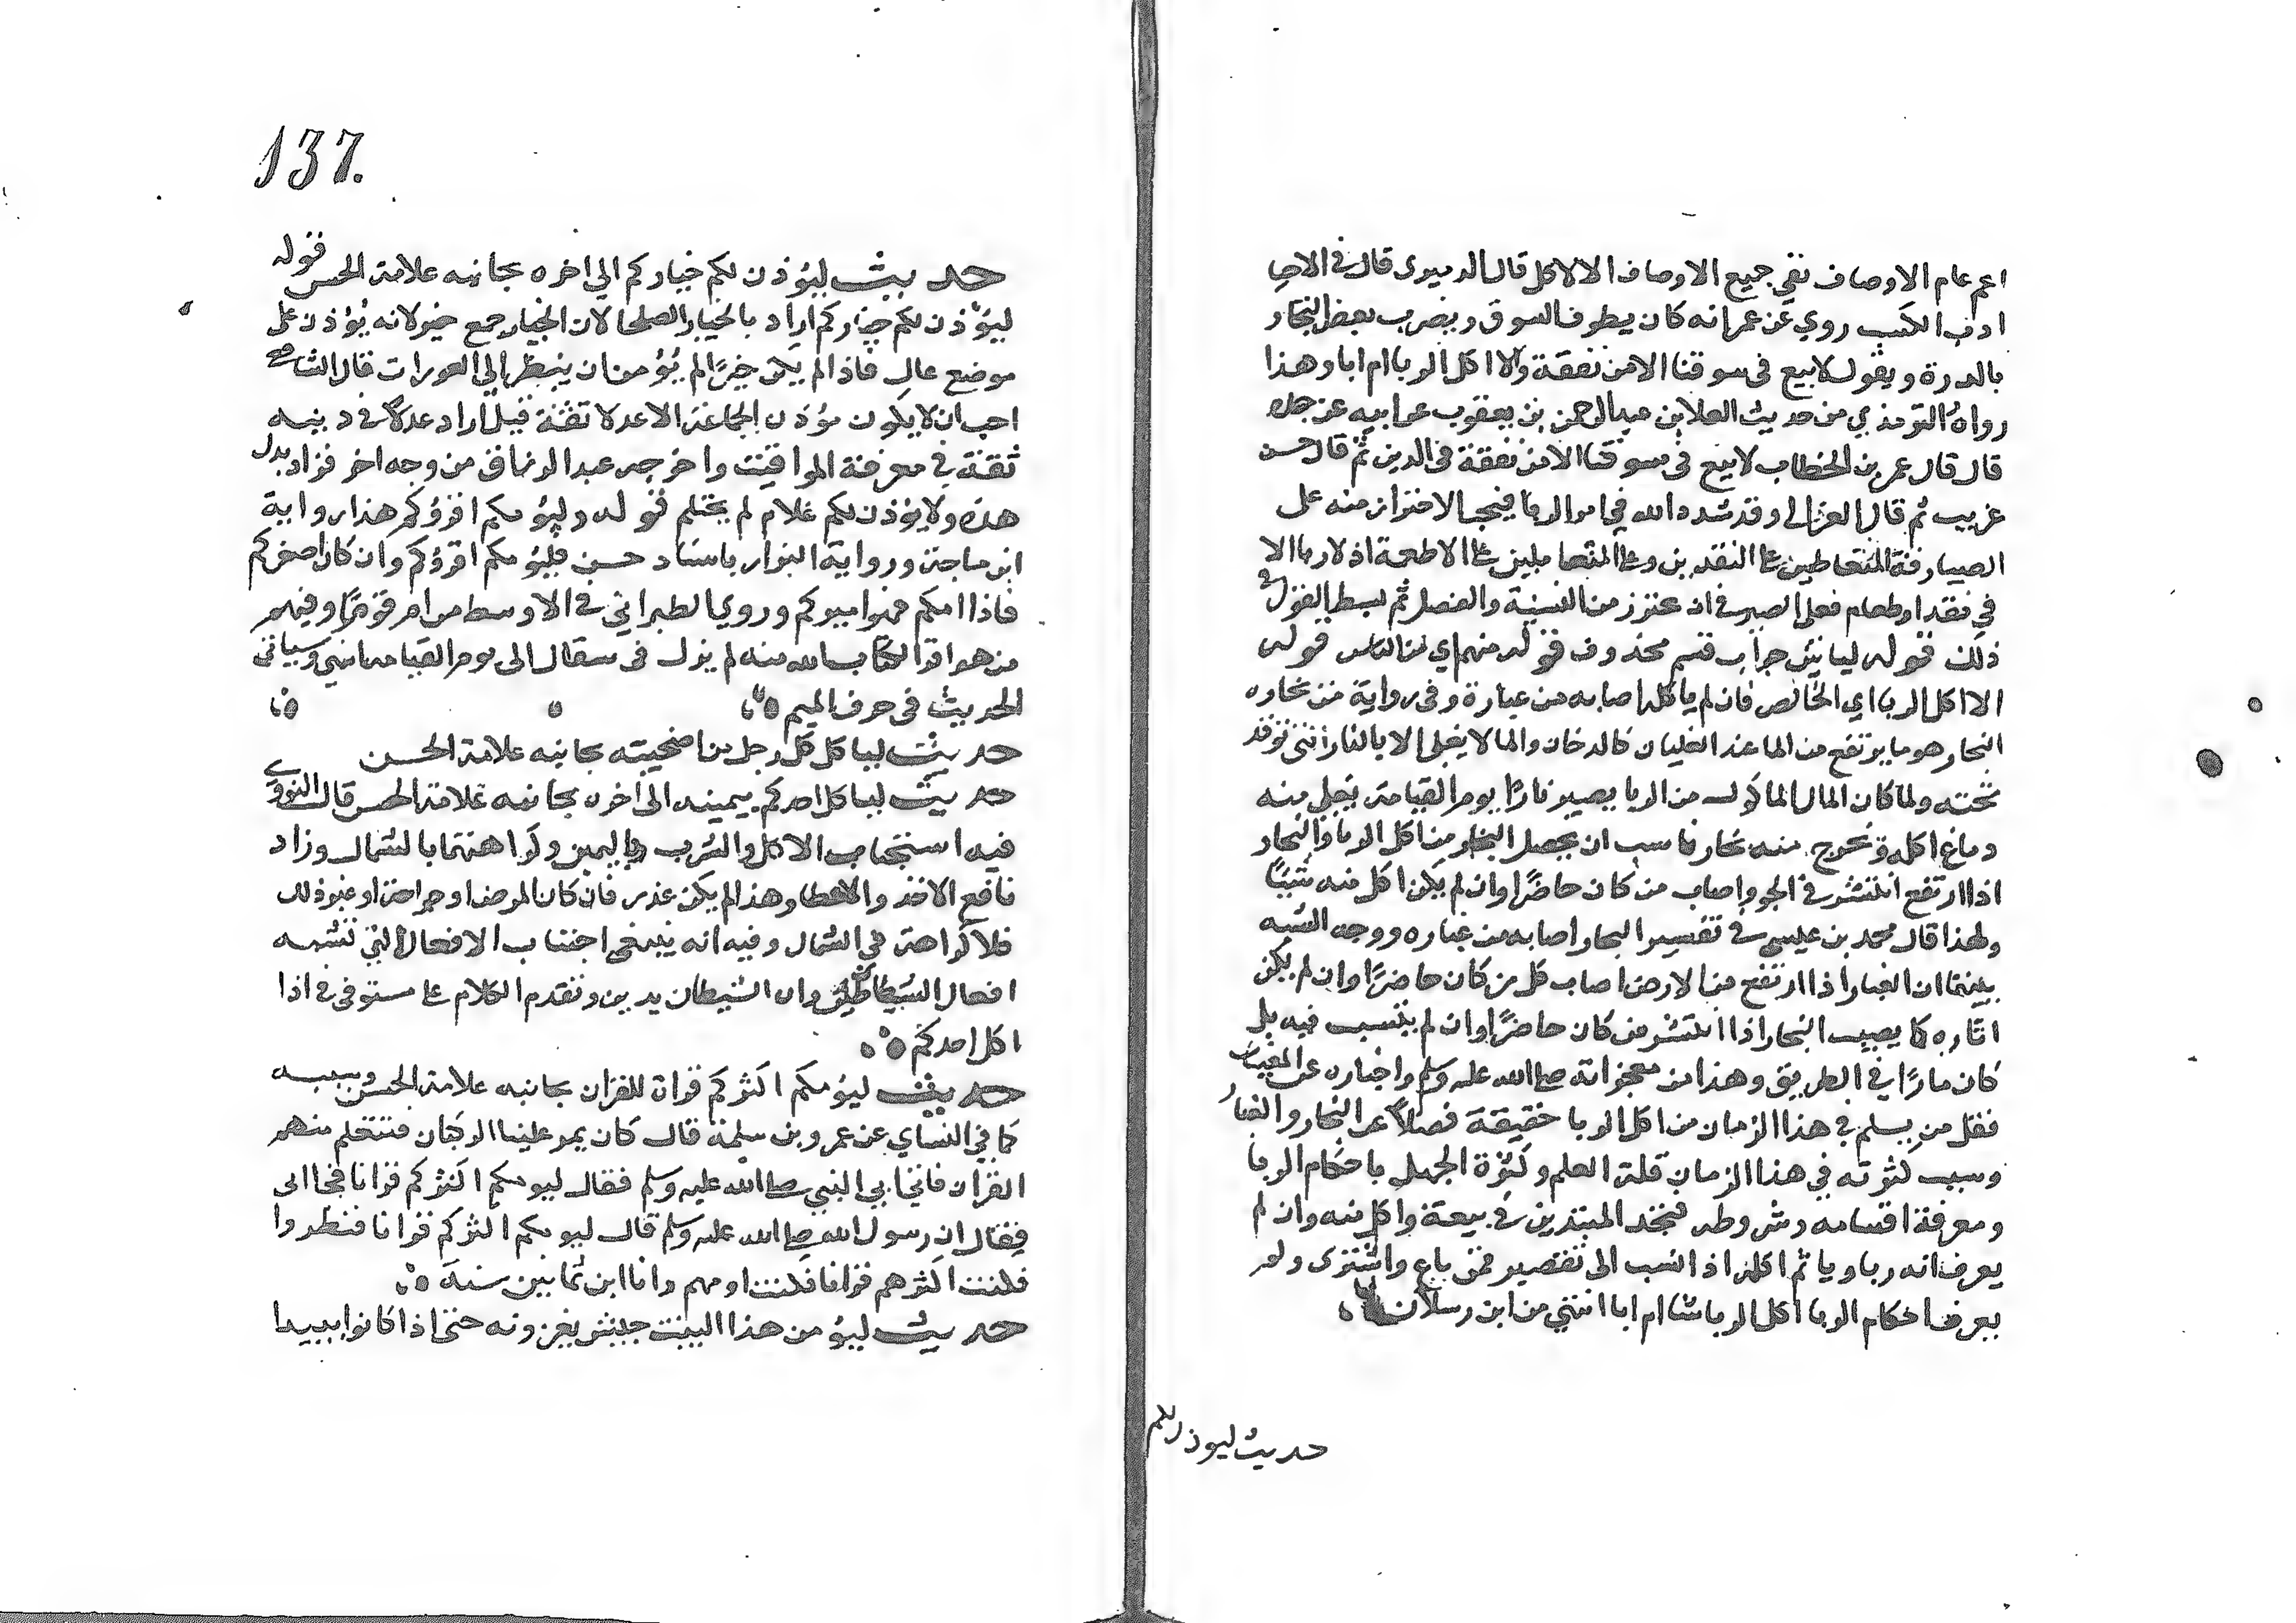 اعم عام الاوصاف نفي جميع الاوصاف الا الاكل قال الدميرى قال فى الاحيا
ادب الكسب روي عن عمر انه كان يطوف السوق ويضرب بعض التجار
بالدرة ويقول لا يبيع فى سوقنا الا من تفقه والا اكل الربا ام ابا وهذا
رواه الترمذي من حديث العلا بن عبد الرحمن بن يعقوب عن ابيه عن جده
قال قال عمر بن الخطاب لا يبيع فى سوقنا الا من تفقه فى الدين ثم قال حسن
غريب ثم قال الغزالى وقد شدد الله في امر الربا فيجب الاحتراز منه على
الصيارفة المتعاطين على النقدين وعلى المتعاملين على الاطعمة اذ لا ربا الا
في نقد او طعام فعلى الصيرفى ان يحترز من النسيئة والفضل ثم بسط القول فى
ذلك قوله لياتين جواب قسم محذوف قوله منهم اي من الناس قوله
الا اكل الربا اي الخالص فان لم ياكله اصابه من غباره وفى رواية من بخاره
البخار هو ما يرتفع من الما عند الغليان كالدخان والما لا يغلى الا بالنار التى توقد
تحته ولما كان المال الماكول من الربا يصير نارًا يوم القيامة يغلى منه
دماغ اكله ويخرج منه بخار ناسب ان يحصل البخار من اكل الربا والبخار
اذا ارتفع انتشر فى الجو واصاب من كان حاضرًا وان لم يكن اكل منه شيئًا
ولهذا قال محمد بن عيسى فى تفسير البخار اصابه من غباره ووجه الشبه
بينهما ان الغبار اذا ارتفع من الارض اصاب كل من كان حاضرًا وان لم يكن
اثاره كما يصيب البخار اذا انتشر من كان حاضرًا وان لم يتسبب فيه بل
كان مارًا في الطريق وهذا من معجزاته صلى الله عليه وسلم واخباره عن المغيبات
فقل من يسلم فى هذا الزمان من اكل الربا حقيقة فضلاً عن البخار والغبار
وسبب كثرته في هذا الزمان قلة العلم وكثرة الجهل باحكام الربا
ومعرفة اقسامه وشروطه فتجد المبتدين فى بيعه واكل منه وان لم
يعرف انه ربا وياثم اكله اذا نسب الى تقصير فمن باع واشترى ولم
يعرف احكام الربا اكل الربا شا ام ابا انتهي من ابن رسلان
حديث ليوذن لكم
137.
حديث ليؤذن لكم خياركم الى اخره بجانبه علامة الحسن قوله
ليؤذن لكم خياركم اراد بالخيار الصلحا لان الخيار جمع خير لانه يؤذن على
موضع عال فاذا لم يكن خيرًا لم يُؤمن ان ينظر الى العورات قال الشافعى
احب ان لا يكون مؤذن الجماعة الا عدلا ثقة قيل اراد عدلاً فى دينه
ثقة فى معرفة المواقيت واخرجه عبد الرزاق من وجه اخر فزاد بدل
هذه ولا يؤذن لكم غلام لم يحتلم قوله وليؤمكم اقرؤكم هذا رواية
ابن ماجة ورواية البزار باسناد حسن فليؤمكم اقرؤكم وان كان اصغركم
فاذا امكم فهو اميركم وروي الطبراني فى الاوسط من ام قومًا وفيهم
من هو اقرا لكتاب الله منه لم يزل فى سفال الى يوم القيامه انتهي وسياتى
الحديث فى حرف الميم
حديث لياكل كل رجل من اضحيته بجانبه علامة الحسن
حديث لياكل احدكم بيمينه الى اخره بجانبه علامة الحسن قال النووى
فيه استحباب الاكل والشرب باليمين وكراهتهما بالشمال وزاد
نافع الاخذ والاعطا وهذا لم يكن عذر فان كان لمرض او جراحة او غير ذلك
فلا كراهة في الشمال وفيه انه ينبغى اجتناب الافعال التي تشبه
افعال الشياطين وان الشيطان يدين وتقدم الكلام على مستوفى فى اذا
اكل احدكم
حديث ليؤمكم اكثركم قراة للقران بجانبه علامة الحسن وسببه
كما فى النساي عن عمرو بن سلمة قال كان يمر علينا الركبان فنتعلم منهم
القران فاتى ابي النبي صلى الله عليه وسلم فقال ليومكم اكثركم قرانا فجا ابى
فقال ان رسول الله صلى الله عليه وسلم قال ليومكم اكثركم قرانا فنظروا
فكنت اكثرهم قرانا فكنت اومهم وانا ابن ثمانين سنة
حديث ليؤمن هذا البيت جيش يغزونه حتى اذا كانوا ببيدا